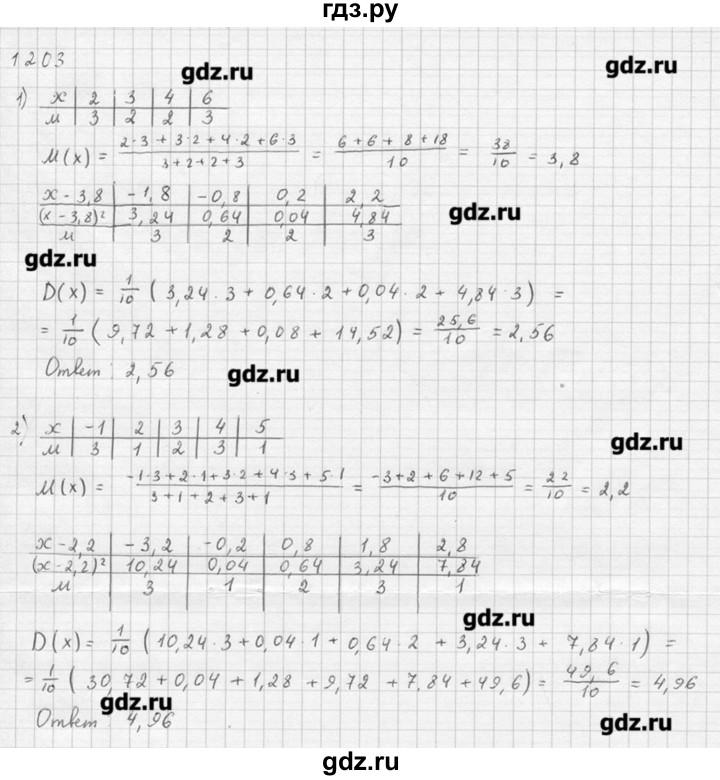 гдз.ру
1203
gdz.ru
gdz.ru
1) x | 2 | 3 | 4 | 6
м | 3 | 2 | 2 | 3
M(x) = (2·3 + 3·2 + 4·2 + 6·3)/(3+2+2+3) = (6+6+8+18)/10 = 38/10 = 3,8
x - 3,8 | -1,8 | -0,8 | 0,2 | 2,2
(x - 3,8)² | 3,24 | 0,64 | 0,04 | 4,84
gdz.ru
м | 3 | 2 | 2 | 3
gdz.ru
D(x) = 1/10 (3,24·3 + 0,64·2 + 0,04·2 + 4,84·3) =
= 1/10 (9,72 + 1,28 + 0,08 + 14,52) = 25,6/10 = 2,56
Ответ: 2,56
gdz.ru
2) x | -1 | 2 | 3 | 4 | 5
м | 3 | 1 | 2 | 3 | 1
gdz.ru
M(x) = (-1·3+2·1+3·2+4·3+5·1)/(3+1+2+3+1) = (-3+2+6+12+5)/10 = 22/10 = 2,2
x - 2,2 | -3,2 | -0,2 | 0,8 | 1,8 | 2,8
(x - 2,2)² | 10,24 | 0,04 | 0,64 | 3,24 | 7,84
м | 3 | 1 | 2 | 3 | 1
gdz.ru
D(x) = 1/10 (10,24·3 + 0,04·1 + 0,64·2 + 3,24·3 + 7,84·1) =
= 1/10 (30,72 + 0,04 + 1,28 + 9,72 + 7,84 + 49,6) = 49,6/10 = 4,96
gdz.ru
Ответ: 4,96
gdz.ru
gdz.ru